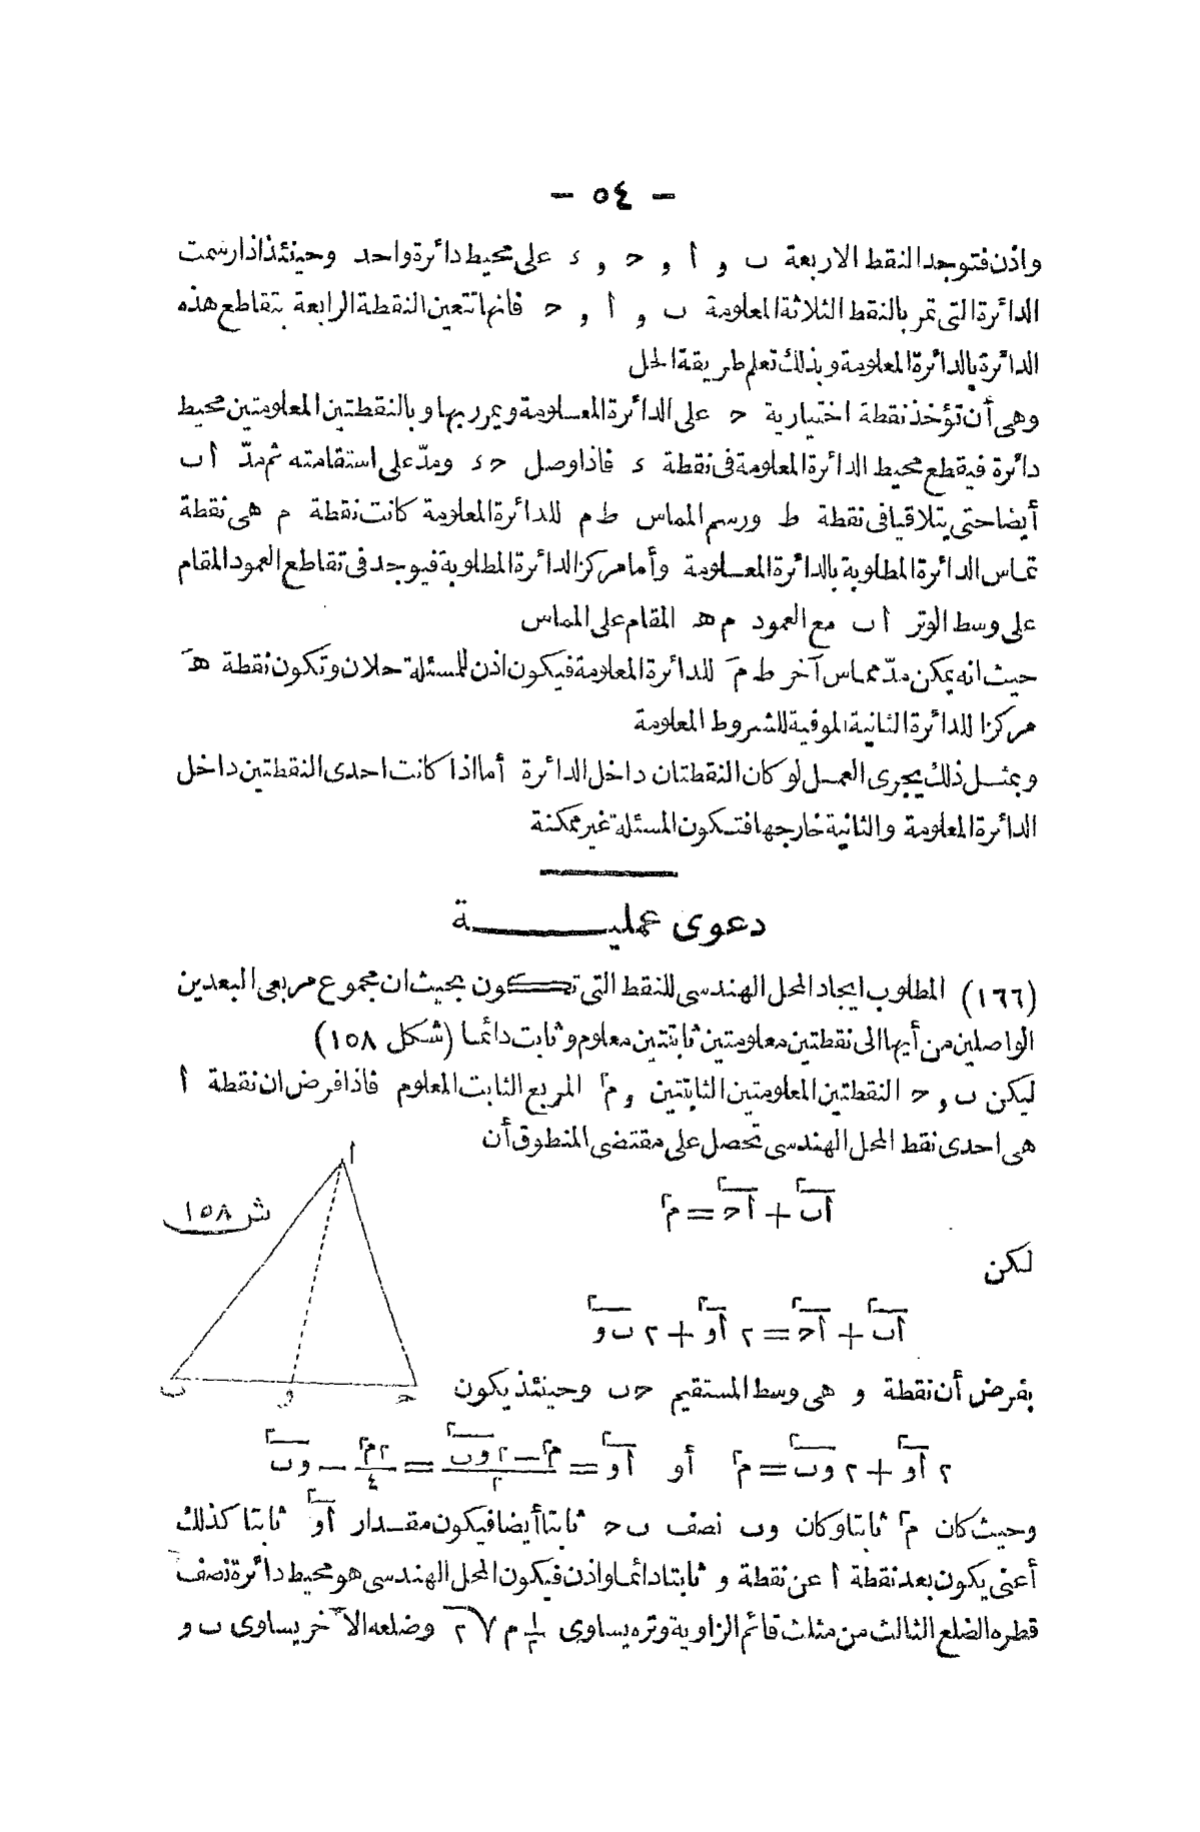 — ٥٤ —
واذن فتوجد النقط الاربعة ب و أ و ح و ء على محيط دائرة واحد وحينئذ اذا رسمت
الدائرة التى تمر بالنقط الثلاثة المعلومة ب و أ و ح فانها تتعين النقطة الرابعة بتقاطع هذه
الدائرة بالدائرة المعلومة وبذلك تعلم طريقة الحل
وهى أن تؤخذ نقطة اختيارية ح على الدائرة المعلومة ويمرر بها وبالنقطتين المعلومتين محيط
دائرة فيقطع محيط الدائرة المعلومة فى نقطة ء فاذا وصل حء ومدّ على استقامته ثم مدّ أب
أيضا حتى يتلاقيا فى نقطة ط ورسم المماس طم للدائرة المعلومة كانت نقطة م هى نقطة
تماس الدائرة المطلوبة بالدائرة المعلومة وأما مركز الدائرة المطلوبة فيوجد فى تقاطع العمود المقام
على وسط الوتر أب مع العمود مهـ المقام على المماس
حيث انه يمكن مدّ مماس آخر طمَ للدائرة المعلومة فيكون اذن للمسئلة حلان وتكون نقطة هـَ
مركزا للدائرة الثانية الموفية للشروط المعلومة
وبمثل ذلك يجرى العمل لو كان النقطتان داخل الدائرة أما اذا كانت احدى النقطتين داخل
الدائرة المعلومة والثانية خارجها فتكون المسئلة غير ممكنة
دعوى عملية
(١٦٦) المطلوب ايجاد المحل الهندسى للنقط التى تكون بحيث ان مجموع مربعى البعدين
الواصلين من أيها الى نقطتين معلومتين ثابتتين معلوم وثابت دائما (شكل ١٥٨)
ليكن ب و ح النقطتين المعلومتين الثابتتين و م٢ المربع الثابت المعلوم فاذا فرض ان نقطة أ
هى احدى نقط المحل الهندسى تحصل على مقتضى المنطوق أن
أ
ش ١٥٨
أب٢ + أح٢ = م٢
لكن
أب٢ + أح٢ = ٢ أو٢ + ٢ ب و٢
ب و ح
بفرض أن نقطة و هى وسط المستقيم حب وحينئذ يكون
٢ أو٢ + ٢ وب٢ = م٢ أو أو٢ = (م٢ − ٢ وب٢)/٢ = ٢م٢/٤ − وب٢
وحيث كان م٢ ثابتا وكان وب نصف بح ثابتا أيضا فيكون مقدار أو٢ ثابتا كذلك
أعنى يكون بعد نقطة أ عن نقطة و ثابتا دائما واذن فيكون المحل الهندسى هو محيط دائرة نصف
قطره الضلع الثالث من مثلث قائم الزاوية وتره يساوى ١/٢ م √٢ وضلعه الآخر يساوى ب و